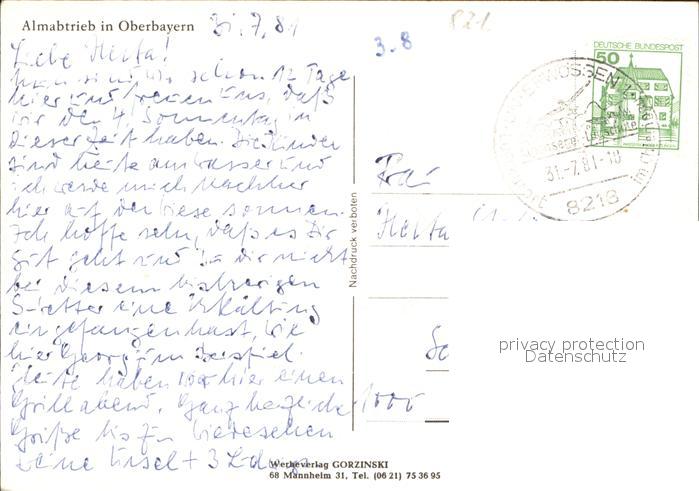 Almabtrieb in Oberbayern
31.7.81
3.8
821
Liebe Herta!
Nun sind wir schon 12 Tage
hier und freuen uns, daß
wir den 4. Sonnentag in
dieser Zeit haben. Die Kinder
sind heute am Wasser und
ich werde mich nachher
hier auf der Wiese sonnen.
Ich hoffe sehr, daß es Dir
gut geht und Du dir nicht
bei diesem bisherigen
eine Erkältung
eingefangen hast, wie
hier Georg zum Beispiel.
Heute haben wir hier einen
Grillabend. Ganz herzliche
Grüße bis zum Wiedersehen
Deine Ursel + 3
Nachdruck verboten
DEUTSCHE BUNDESPOST
50
31.-7.81-18
8218
Frau
Herta
1000
privacy protection
Datenschutz
Werbeverlag GORZINSKI
68 Mannheim 31, Tel. (06 21) 75 36 95